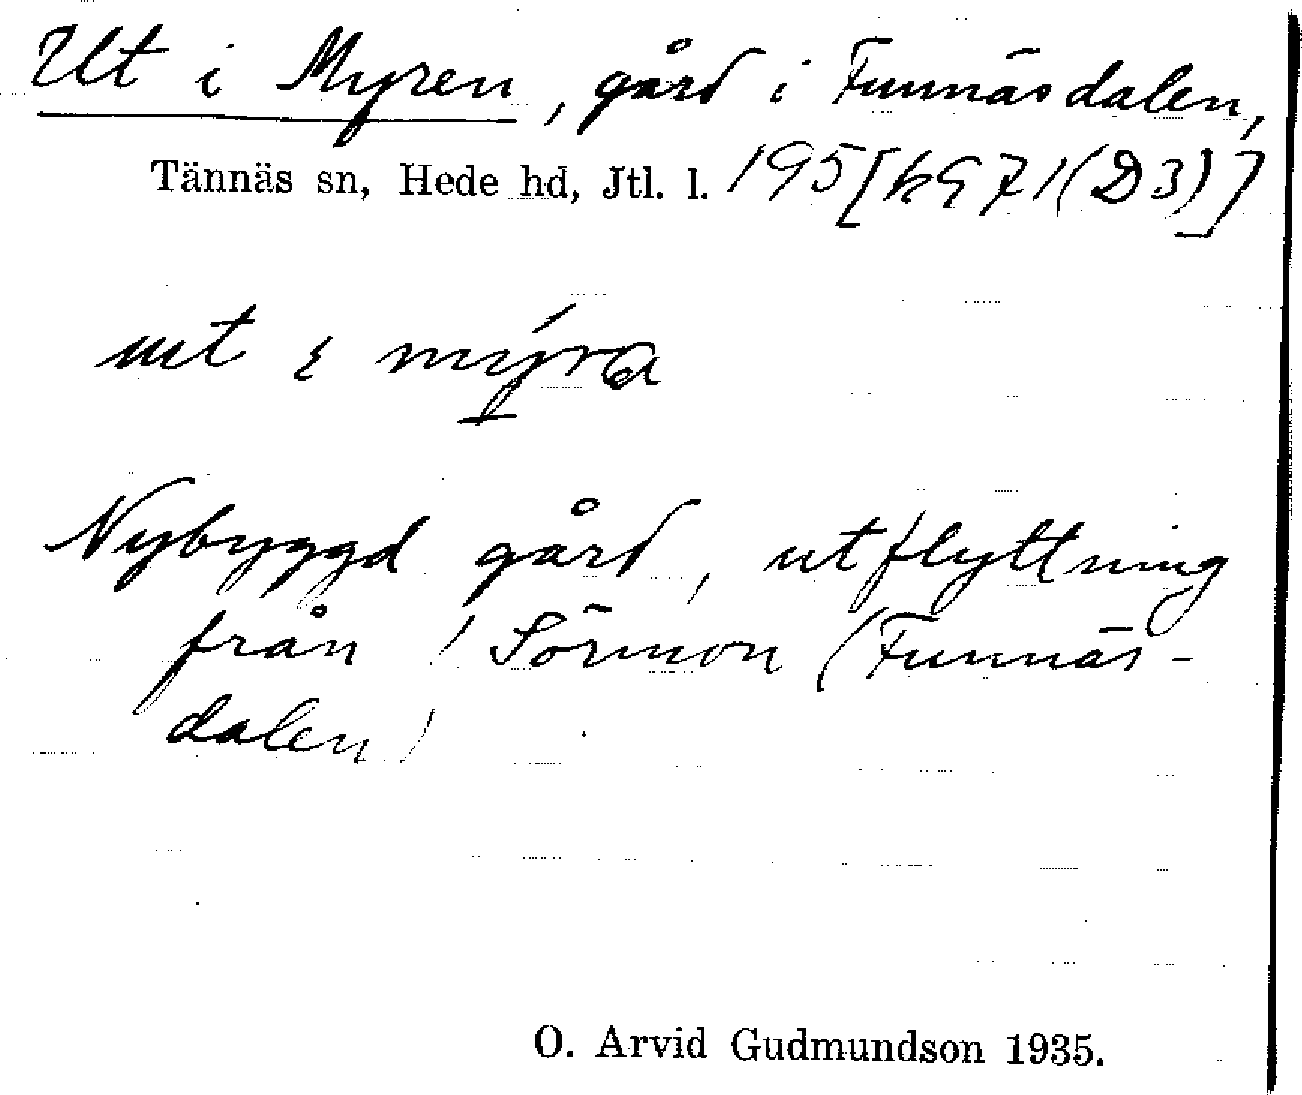 Ut i Myren, gård i Funnäsdalen,
Tännäs sn, Hede hd, Jtl. l. 195[k971(D3)]
ut i mýra
Nybyggd gård, utflyttning
från / Sörmon (Funnäs-
dalen/
O. Arvid Gudmundson 1935.